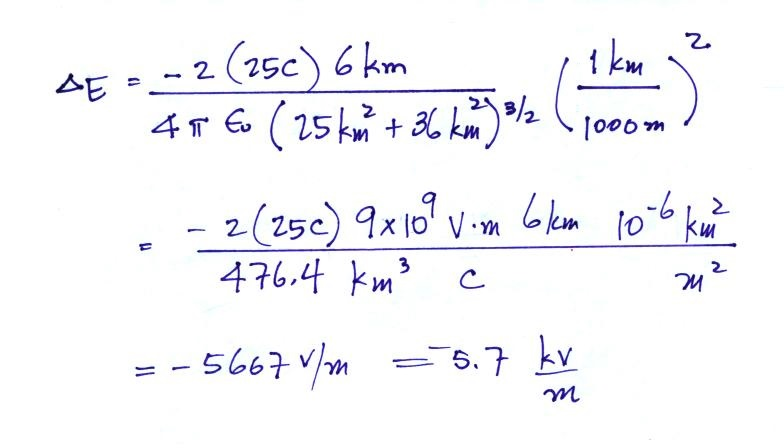 ΔE = -2 (25C) 6 km / 4 π ε₀ (25 km² + 36 km²)^3/2 (1 km / 1000 m)²
= -2 (25C) 9×10⁹ V·m 6 km 10⁻⁶ km² / 476.4 km³ C m²
= -5667 V/m = -5.7 kV/m